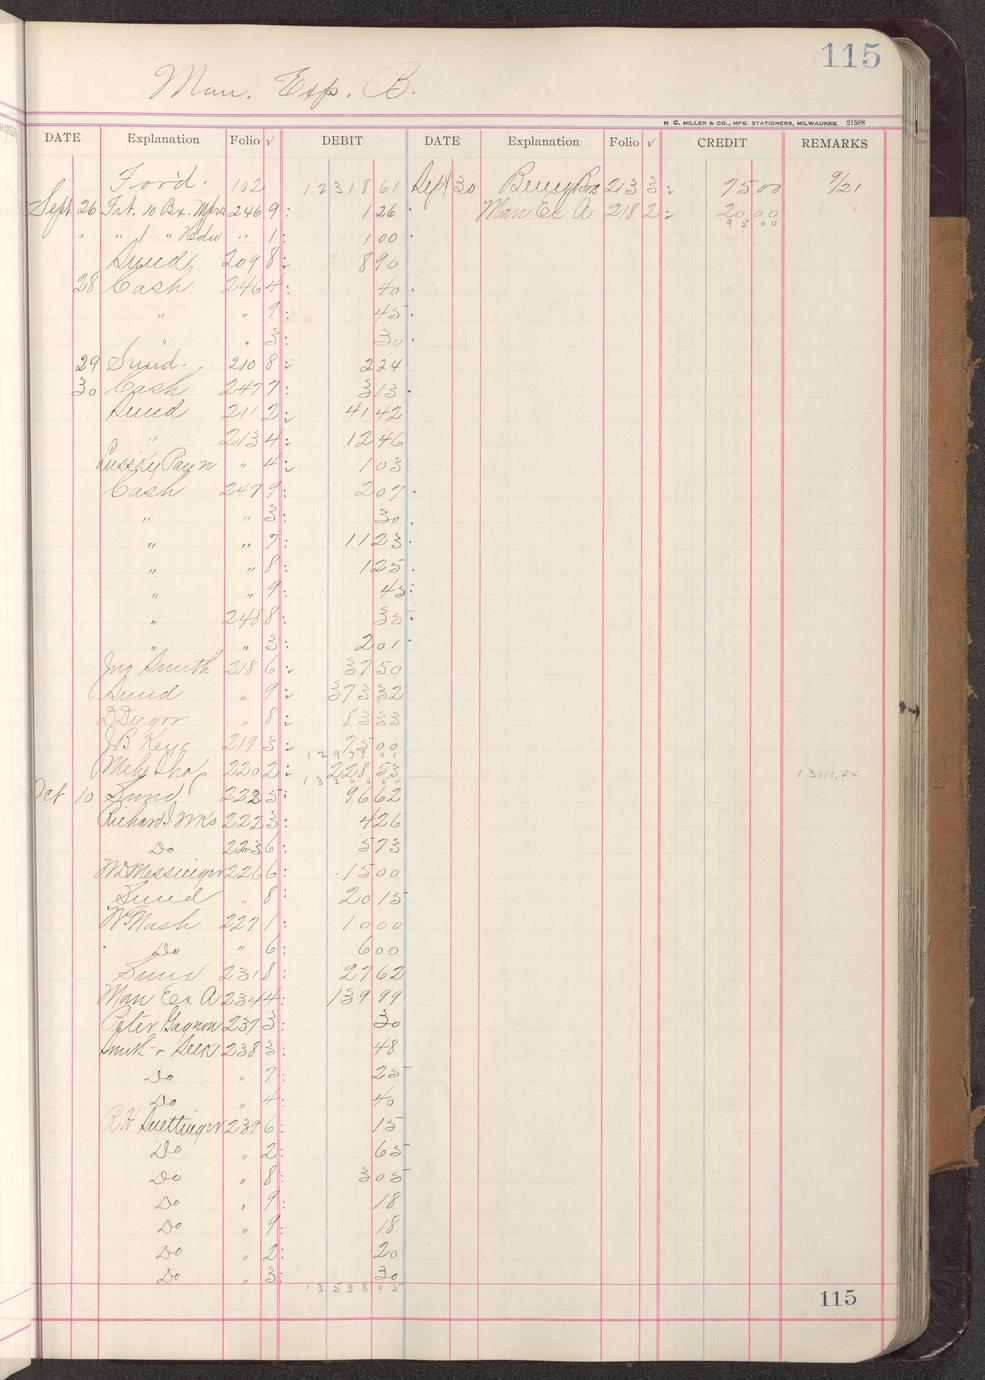 115
Man. Exp. B.
H. C. MILLER & CO., MFG. STATIONERS, MILWAUKEE, 21588
DATE Explanation Folio √ DEBIT DATE Explanation Folio √ CREDIT REMARKS
For'd. 102 12318 61 Sept 30 213 3 75 00 9/21
Sept. 26 Frt. 10 Bx. 246 9 1 26 Man Ex A 218 2 20 00
" " " 1 " Hdw " 1 1 00 95 00
Sund 209 8 8 90
28 Cash 246 4 40
" " 9 45
" " 3 30
29 Sund. 210 8 2 24
30 Cash 247 7 3 13
Sund 211 2 41 42
" 213 4 12 46
" 4 1 03
Cash 247 9 2 07
" " 3 30
" " 7 11 23
" " 8 1 25
" " 9 45
" 248 8 35
" " 3 2 01
Jno Smith 218 6 37 50
Sund " 9 373 32
" 8 83 33
J B 219 3 75 00
Meh Shop 220 2 228 53 13111.54
Oct 10 Sund 222 5 96 62
Richards Wks 222 3 4 26
Do 223 6 5 73
W D Messinger 226 6 15 00
Sund " 8 20 15
Wm Nash 227 1 10 00
Do " 6 6 00
Sund 231 8 27 62
Man Ex A 234 4 139 99
Peter Gagnon 237 3 30
Smith 238 3 48
Do " 7 25
Do " 4 40
R H Suettinger 239 6 15
Do " 2 65
Do " 8 3 05
Do " 9 18
Do " 9 18
Do " 2 20
Do " 3 30
13538 05
115